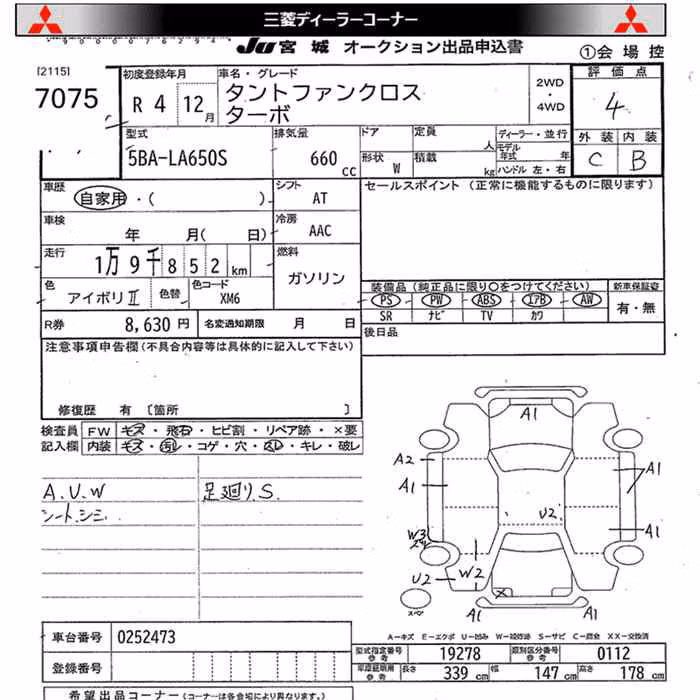 三菱ディーラーコーナー
JU 宮城 オークション出品申込書
①会場控
[2115]
7075
初度登録年月
R 4 12月
車名・グレード
タントファンクロス
ターボ
2WD
・
4WD
評価点
4
外装 内装
C B
型式
5BA-LA650S
排気量
660 cc
ドア 定員 人
形状 W 積載 kg
ディーラー・並行
モデル年式 年
ハンドル 左・右
車歴
自家用・( )
シフト
AT
車検
年 月( 日)
冷房
AAC
走行
1万9千852km
燃料
ガソリン
色
アイボリⅡ
色替
色コード
XM6
R券 8,630円
名変通知期限 月 日
セールスポイント(正常に機能するものに限ります)
装備品(純正品に限り○をつけてください)
PS PW ABS エアB AW
SR ナビ TV カワ
新車保証書
有・無
後日品
注意事項申告欄(不具合内容等は具体的に記入して下さい)
修復歴 有 〔箇所 〕
検査員 FW キズ・飛石・ヒビ割・リペア跡・×要
記入欄 内装 キズ・汚レ・コゲ・穴・スレ・キレ・破レ
A.U.W
シート.シミ.
足廻りS.
A1
A2
A1
A1
A1
U2
W3
W2
U2
A1
A1
スペア
A-キズ E-エクボ U-凹み W-補修跡 S-サビ C-腐食 XX-交換済
車台番号 0252473
登録番号
型式指定番号 参考 19278
類別区分番号 参考 0112
車庫証明用 参考 長さ 339 cm 幅 147 cm 高さ 178 cm
希望出品コーナー(コーナーは各会場により異なります。)